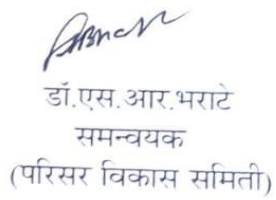 डॉ.एस.आर.भराटे
समन्वयक
(परिसर विकास समिती)